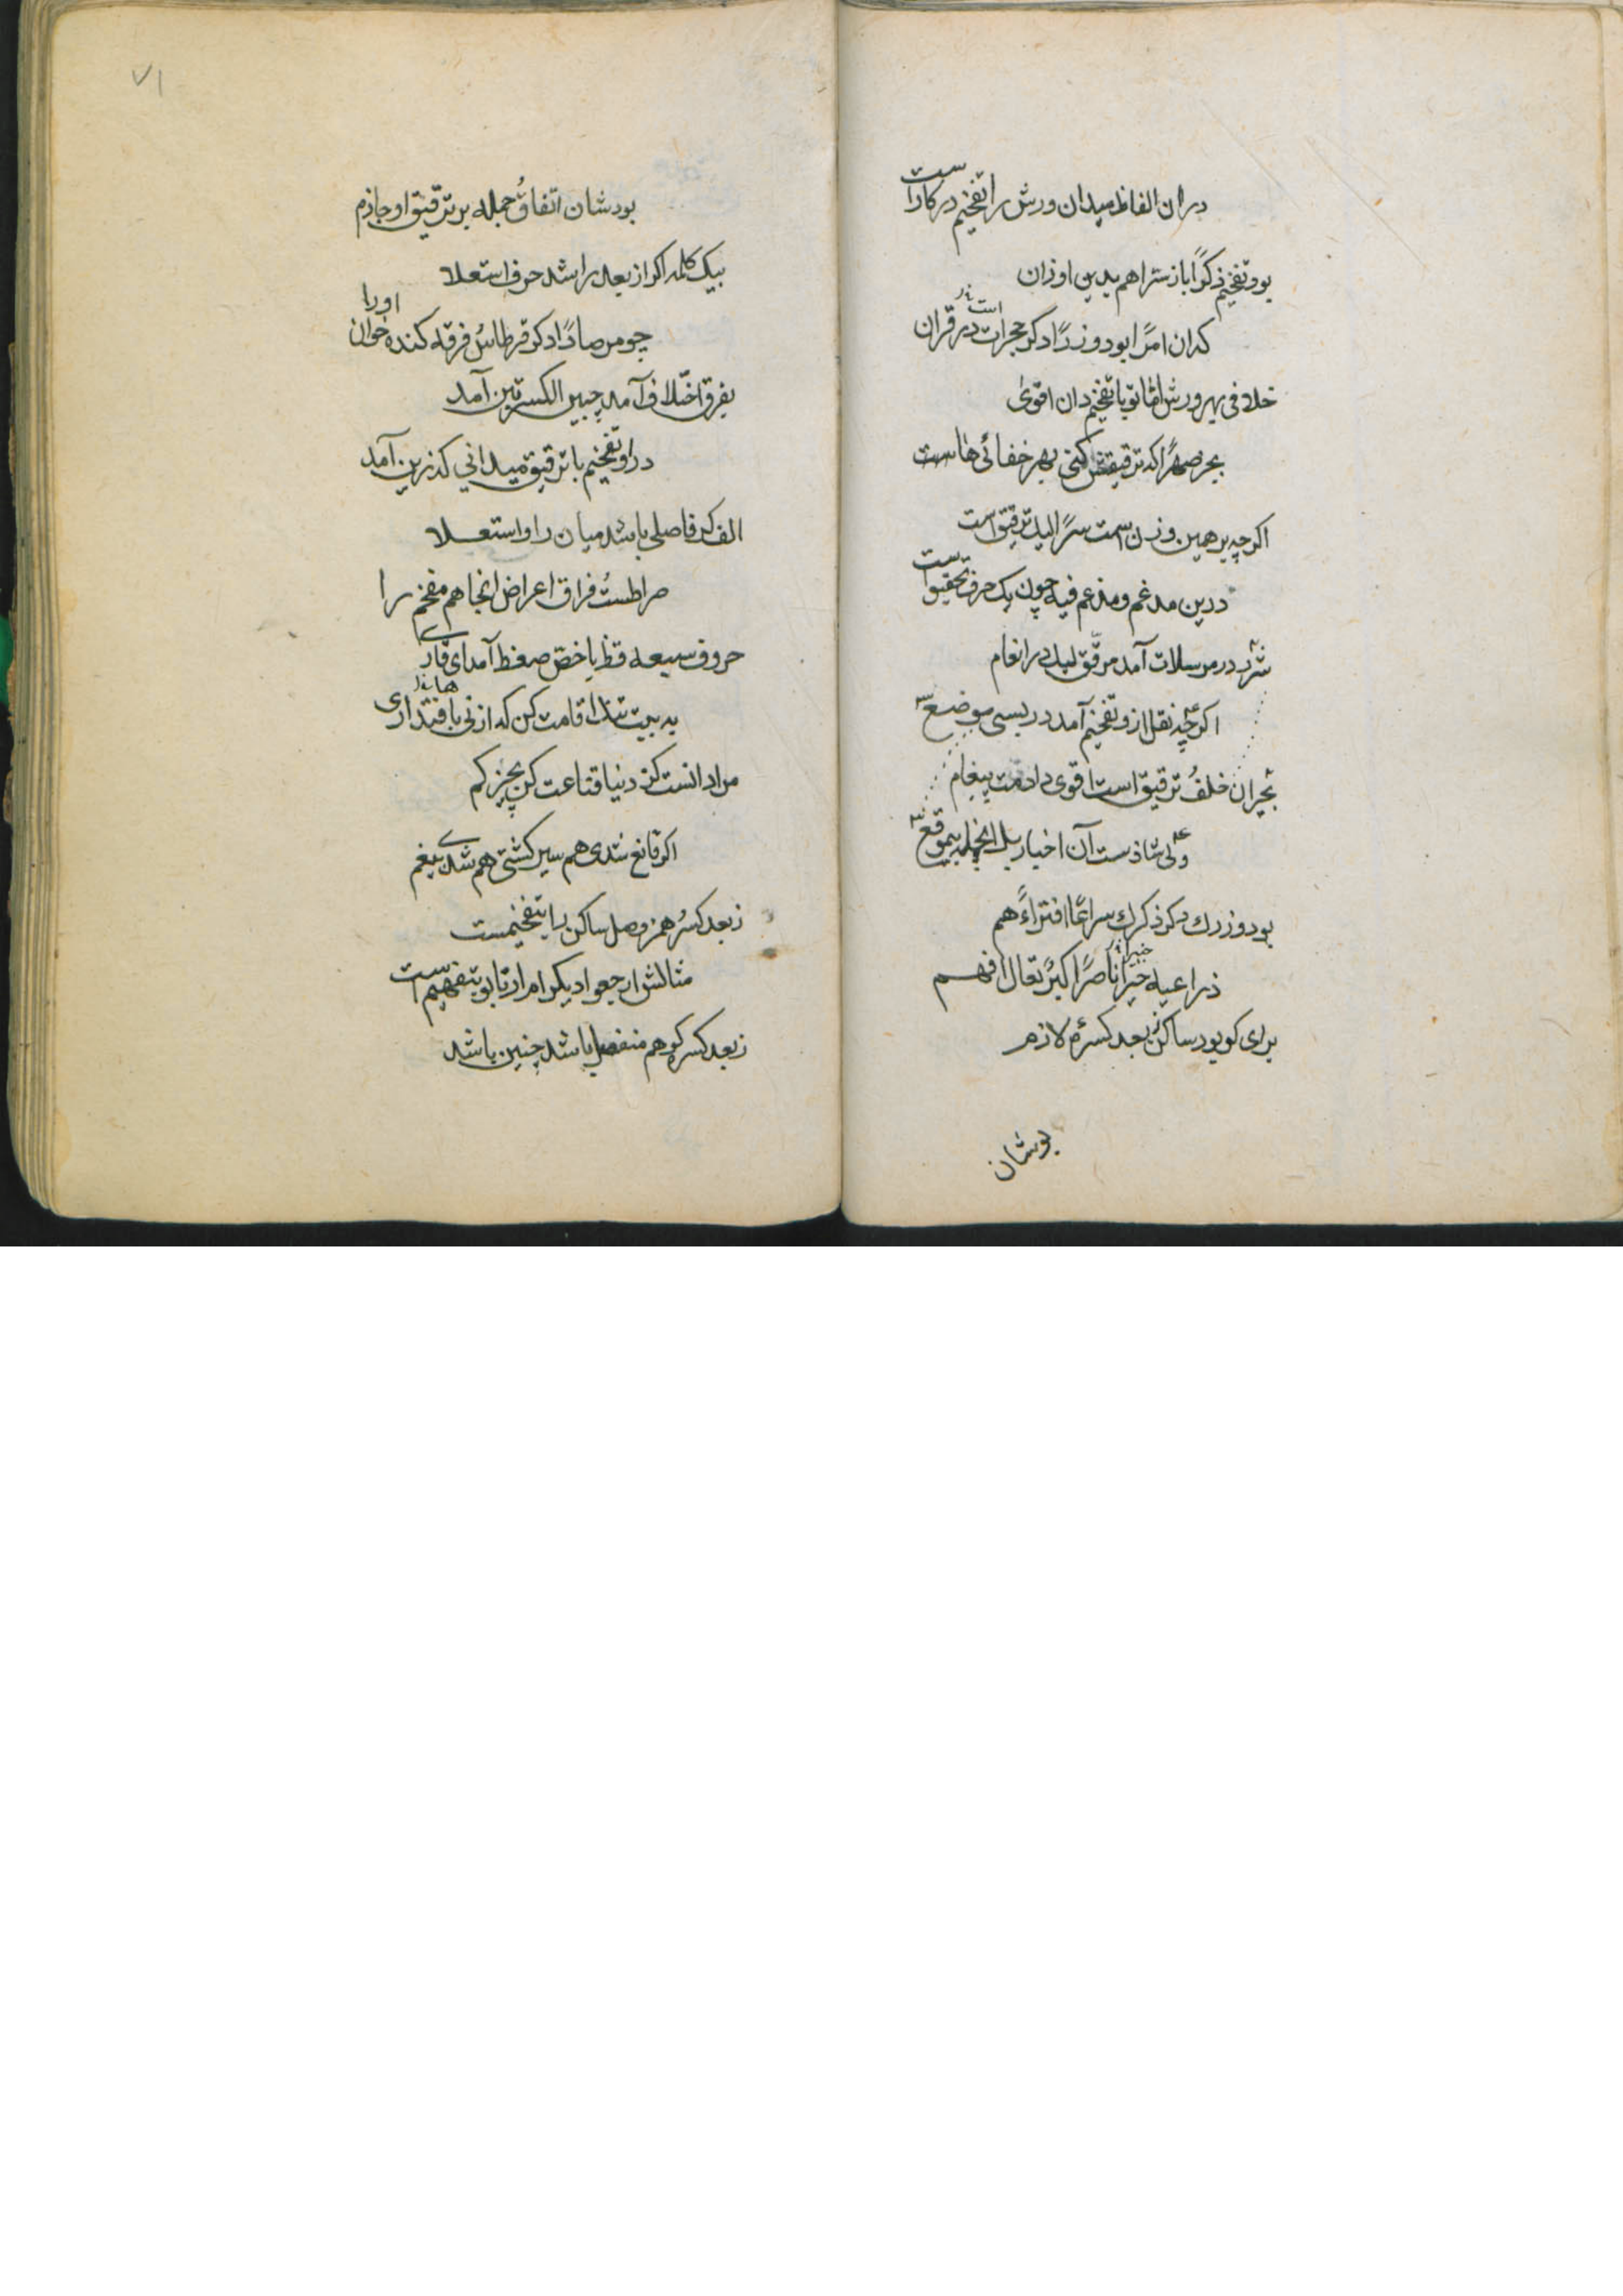 دران الفاظ میدان ورش را تفخیم درکار است
بود تفخیم ذکرًا باز سترا هم بدین اوزان
که ان امرًا بود وزرًا دکر حجرات است در قران
خلافی بهر ورش اما تو با تفخیم دان اقوی
بجز صهرًا که ترقیقش کنی بهر خفائی هاست
اکرچه بر همین وزن است سرًا لیك ترقیق است
درین مدغم ومدغم فیه چون یک حرف تحقیق است
شرر در مرسلات آمد مرقق لیك در انعام
اکرچه نقل ازو تفخیم آمد در بسی موضع
بحیران خلف ترقیق است اقوی دادمت پیغام
ولی شاذست آن اخبار
بود وزرك دکر ذکرك سراعًا افتراءً هم
ذراعیه خبیرًا ناصرًا اکبرً تعال افهم
برای کو بود ساکن ز بعد کسرهٔ لازم
بودشان
٧١
بودشان اتفاق جمله بر ترقیق او جازم
بیك کلمه اکر از بعد را شد حرف استعلا
چو مرصادًا دکر قرطاس فرقه کنده خوان اورا
بفرق اختلاف آمد چو بین الکسرتین آمد
درو تفخیم با ترقیق میدانی کذزین آمد
الف کر فاصلی باشد میان را و استعلا
صراطست فراق اعراض انجا هم مفخم را
حروف سبعه قظ یا خص ضغط آمد ای قاری
به بیت تنك اقامت کن که ازنی ها با قتداری
مراد انست کز دنیا قناعت کن بچیز کم
اکر قانع شدی هم سیر کشتی هم شدی بیغم
ز بعد کسر همز وصل ساکن را بتفخیمست
مثالش ارجعوا دیکر ام ارتابو بتفهیم است
ز بعد کسره کو هم منفصل باشد چنین باشد